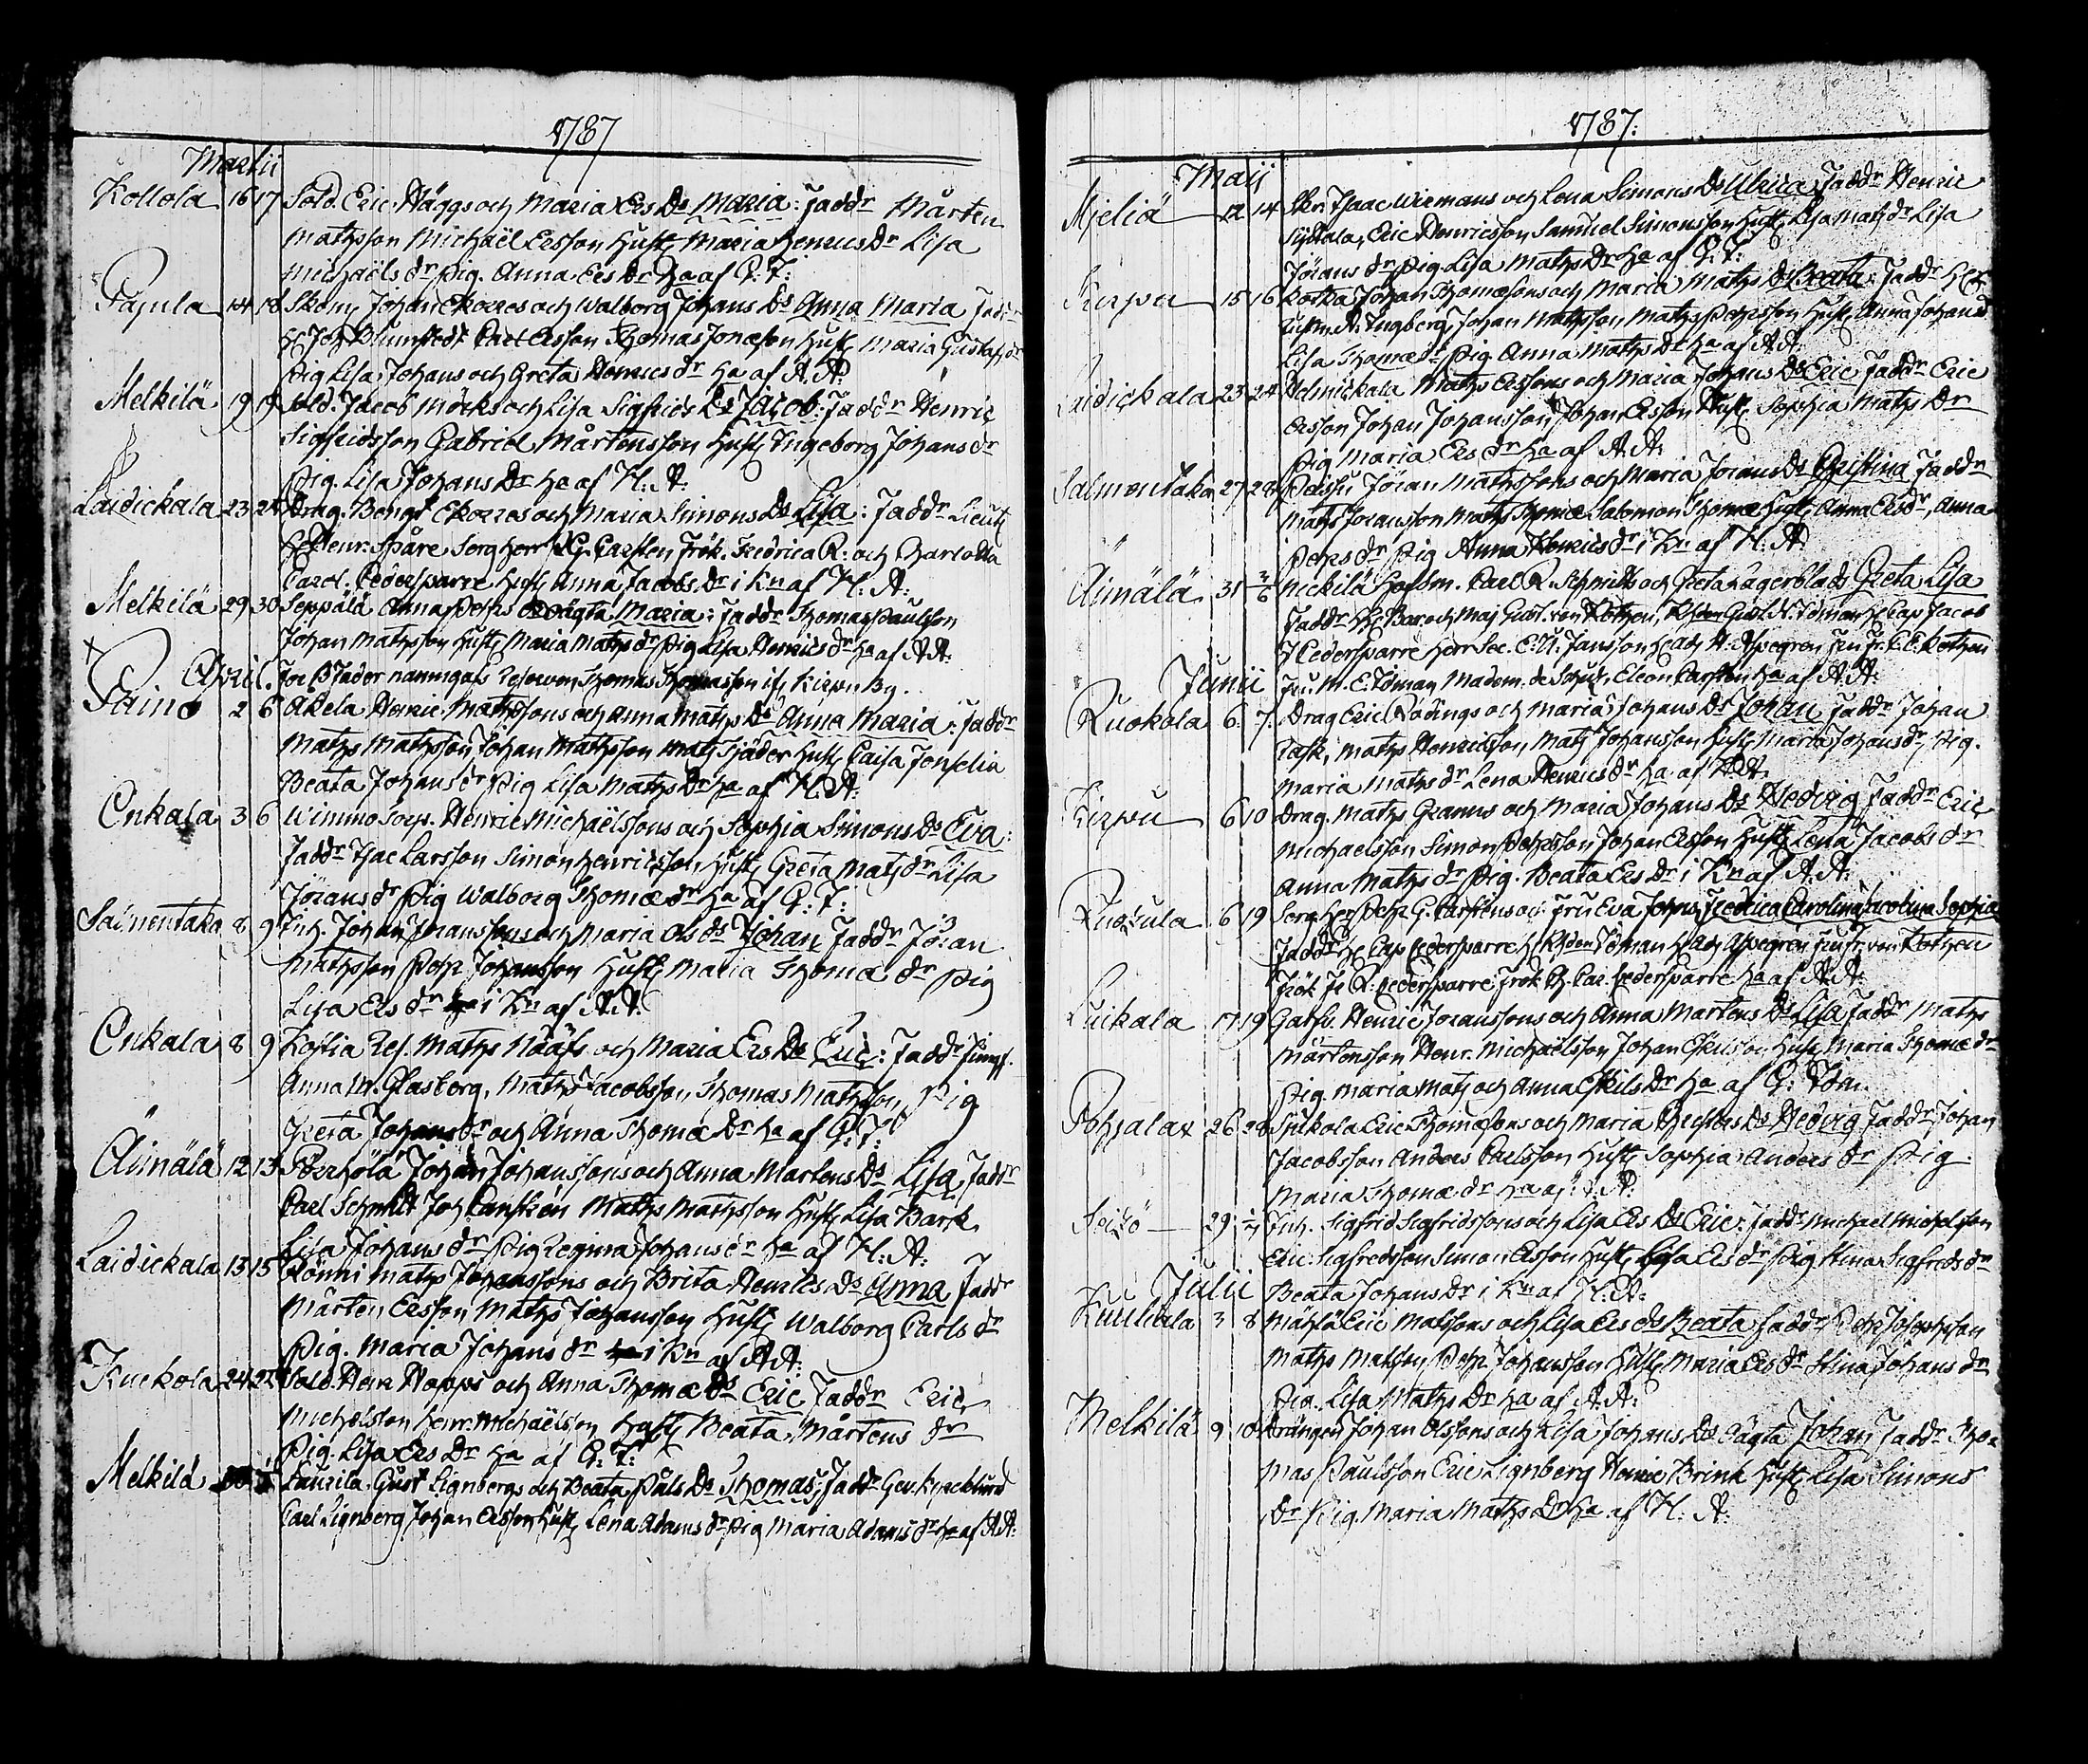 1787
Martii
Kollola 16 17 Sold. Eric Häggs och Maria Ers Ds Maria: Faddr Mårten
Mathsson Michaël Ersson Hust: Maria Henrics Dr Lisa
Michaëls dr Pig. Anna Ers Dr ha af G. T:
Pajula 14 18 Skom: Johan Ekorres och Walborg Johans Ds Anna Maria Faddr
H: Joh. Blumstedt Carl Ersson Thomas Jonæson Hust: Maria Gustafs dr
Pig Lisa Johans och Greta Henrics dr ha af A. A:
Melkilä 19 19 Sold. Jacob Mörks och Lisa Sigfrids Ds Jacob: Faddr Henric
Sigfridsson Gabriel Mårtensson Hust: Ingeborg Johans dr
Pig. Lisa Johans Dr ha af H. A:
Laidickala 23 24 Drag. Bengt Ekorres och Maria Simons Ds Lisa: Faddr Lieut:
H: Henr. Spåre Serg Herr P. G. Carsten Frök. Fredrica R: och Charlotta
Carol. Cedersparre Hust: Anna Jacobs Dr i Kn af H: A:
Melkilä 29 30 Seppälä Anna Pehrs Dr oägta Maria: Faddr Thomas Paulsson
Johan Mathsson Hust: Maria Maths dr Pig Lisa Henrics dr ha af A A:
April. For B. Fader namngafs Thomas Thomasson if: Kirpu By.
Paino 2 6 Akela Henric Mathssons och Anna Maths Ds Anna Maria: Faddr
Maths Mathsson Johan Mathsson Mats Sjäder Hust: Caisa Jonselia
Beata Johans dr Pig Lisa Maths Dr ha af H. A:
Onkala 3 6 Wimmo Sorp. Henric Michaëlssons och Sophia Simons Ds Eva:
Faddr Isac Larsson Simon Henricsson Hust: Greta Mats dr Lisa
Jörans dr Pig Walborg Thomæ dr ha af G: T:
Salmentaka 8 9 Inh. Johan Joransons och Maria Ols ds Johan Faddr Jöran
Mathsson Pehr Johansson Hust: Maria Thomæ dr Pig
Lisa Ers dr i Kn af A A:
Onkala 8 9 Kostia Ref. Maths Nääfs och Maria Ers Ds Eric: Faddr Jumgf.
Anna M. Glasberg, Maths Jacobsson Thomas Mathsson Pig
Greta Johans dr och Anna Thomæ Dr ha af G: T:
Äimälä 12 13 Perhölä Johan Johanssons och Anna Martens Ds Lisa Faddr
Carl Schmidt Joh Carstén Maths Mathsson Hust: Lisa Bark
Lisa Johans dr Pig Regina Johans dr ha af H: A:
Laidickala 13 15 Rönni Maths Johanssons och Brita Henrics Ds Anna Faddr
Mårten Ersson Maths Johansson Hust: Walborg Carls dr
Pig. Maria Johans dr i Kn af A A:
Kuckola 24 Sold. Henr Hopps och Anna Thomæ Ds Eric Faddr Eric
Michelsson Henr. Michaëlsson Hust: Beata Mårtens dr
Pig. Lisa Ers Dr ha af G: T:
Melkilä Laurila Gust Lignbergs och Beata Påls Ds Thomas; Faddr
Carl Lignberg Johan Ersson Hust: Lena Adams dr Pig Maria Adams dr ha af A A:
1787:
Maij
Mjeliä 12 14 Skr. Isaac Wiemans och Lena Simons Ds Ulrica Faddr Henric
Eric Henricsson Samuel Simonsson Hust: Lisa Mats dr Lisa
Jörans dr Pig Lisa Maths Dr ha af G: T:
Kirpu 15 16 Kotka Johan Thomæsons och Maria Maths Ds Beata: Faddr
A. Engberg, Johan Mathsson, Maths Pehrsson Hust: Anna Johans dr
Lisa Thomæ dr Pig. Anna Maths Dr ha af A A:
Laidickala 23 24 Maths Erssons och Maria Johans Ds Eric Faddr Eric
Ersson Johan Johansson, Johan Ersson Hust: Sophia Maths Dr
Pig Maria Ers dr ha af A. A:
Salmentaka 27 28 Jöran Mathssons och Maria Jorans Ds Christina Faddr
Maths Joransson Maths Thomæ Salomon Thomæ Hust: Anna Ers dr, Anna
Pehrs dr Pig Anna Henrics dr i Kn af H: A:
Äimälä 31 2/6 Nickilä Hofsm. Carl R. Schmidts och Greta Lagerblads Greta Lisa
Faddr H: Bar och Maj Gust. von Kothen, Gust. N. Idman H: Cap Jacob
J Cedersparre Herr Sec. E. U. Jansson H: Adj A. Aspegren Fru Fr. E. E. Kothen
Junii Fru M. E. Idman Madem. Eleon Carsten ha af A A:
Ruokola 6 7 Drag Eric Rödings och Maria Johans Ds Johan Faddr Johan
Task, Maths Henricsson, Mats Johansson Hust: Maria Johans dr Pig.
Maria Maths dr Lena Henrics dr ha af A A:
Kirpu 6 10 Drag. Maths Granns och Maria Johans Ds Hedvig Faddr Eric
Michaelsson Simon Pehrsson Johan Ersson Hust: Lena Jacobs dr
Anna Maths dr Pig. Beata Ers Dr i Kn af A A:
6 19 Serg Her Pehr G. Carstens och Fru Eva Fredrica Carolina Jacolina Sophia
Faddr H: Cap Cedersparre H: Idman H: Adj Aspegren Fru Fr. von Kothen
Frök Fr R. Cedersparre Frök Ch. Car. Cedersparre ha af A. A:
Luikala 17 19 Henric Joranssons och Anna Martens Ds Lisa Faddr Maths
Mårtensson Henr. Michaëlsson Johan Hust: Maria Thomæ dr
Pig. Maria Mats och Anna Eskils Dr ha af G: Idm.
Pohjalax 26 28 Spikola Eric Thomæsons och Maria Ds Hedvig Faddr Johan
Jacobsson Anders Carlsson Hust: Sophia Anders dr Pig
Maria Thomæ dr ha af A:
29 Inh. Sigfrid Sigfridssons och Lisa Ers Ds Eric. Faddr Michael Michelsson
Eric Sigfredsson Simon Ersson Hust: Lisa Ers dr Pig Stina Sigfreds dr
Julii Beata Johans Dr i Kn af H: A:
3 8 Eric Matssons och Lisa Ers ds Beata Faddr Pehr Josephsson
Maths Matsson Pehr Johansson Hust: Maria Ers dr Stina Johans dr
Pig. Lisa Maths Dr ha af A. A:
Melkilä 9 10 Drängen Johan Olssons och Lisa Johans Ds oägta Johan Faddr Tho-
mas Paulsson Eric Lignberg Henric Brink Hust: Lisa Simons
Dr Pig. Maria Maths Dr ha af H: A: